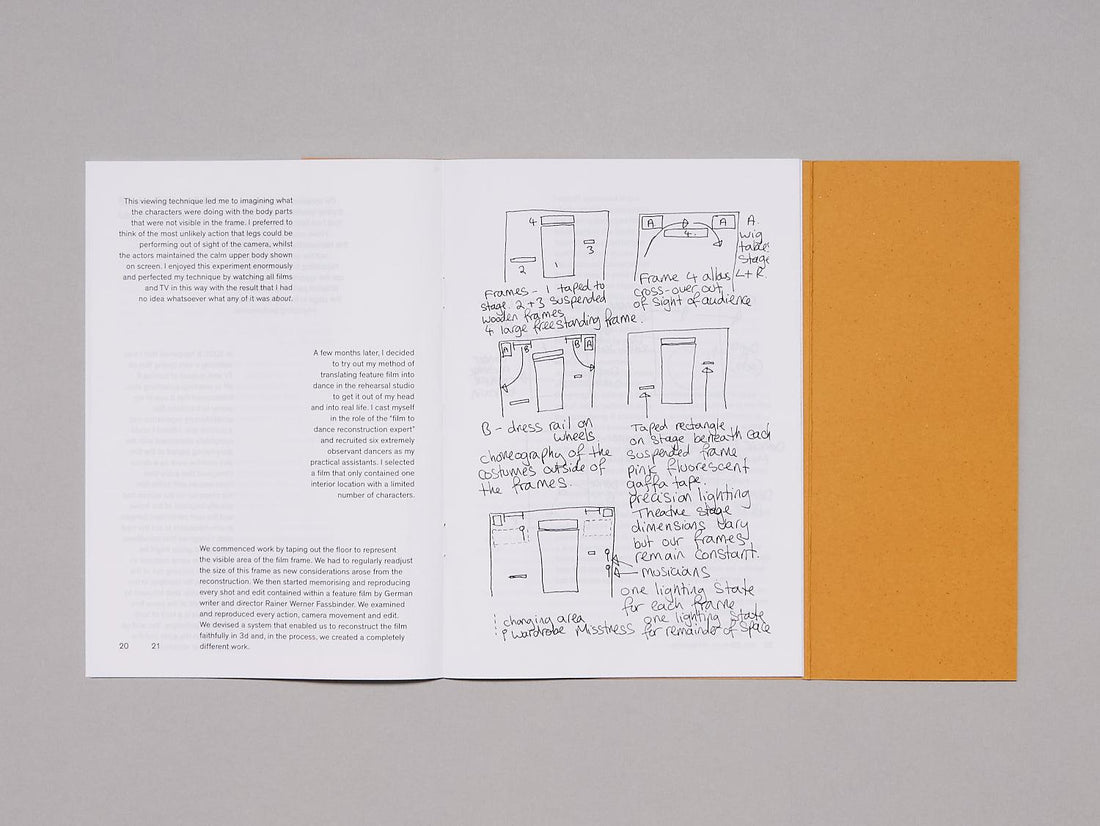 This viewing technique led me to imagining what
the characters were doing with the body parts
that were not visible in the frame. I preferred to
think of the most unlikely action that legs could be
performing out of sight of the camera, whilst
the actors maintained the calm upper body shown
on screen. I enjoyed this experiment enormously
and perfected my technique by watching all films
and TV in this way with the result that I had
no idea whatsoever what any of it was about.
A few months later, I decided
to try out my method of
translating feature film into
dance in the rehearsal studio
to get it out of my head
and into real life. I cast myself
in the role of the “film to
dance reconstruction expert”
and recruited six extremely
observant dancers as my
practical assistants. I selected
a film that only contained one
interior location with a limited
number of characters.
We commenced work by taping out the floor to represent
the visible area of the film frame. We had to regularly readjust
the size of this frame as new considerations arose from the
reconstruction. We then started memorising and reproducing
every shot and edit contained within a feature film by German
writer and director Rainer Werner Fassbinder. We examined
and reproduced every action, camera movement and edit.
We devised a system that enabled us to reconstruct the film
faithfully in 3d and, in the process, we created a completely
different work.
20 21
4
3
2
1
Frames – 1 taped to
stage. 2 + 3 suspended
wooden frames
4 large freestanding frame.
A A
4.
A.
wig
tables
stage
L + R.
Frame 4 allows
cross-over out
of sight of audience
A B B A
B – dress rail on
wheels
choreography of the
costumes outside of
the frames.
Taped rectangle
on stage beneath each
suspended frame
pink fluorescent
gaffa tape.
precision lighting
Theatre stage
dimensions vary
but our frames
remain constant.
musicians
one lighting state
for each frame
one lighting state
for remainder of space
changing area
wardrobe Misstress